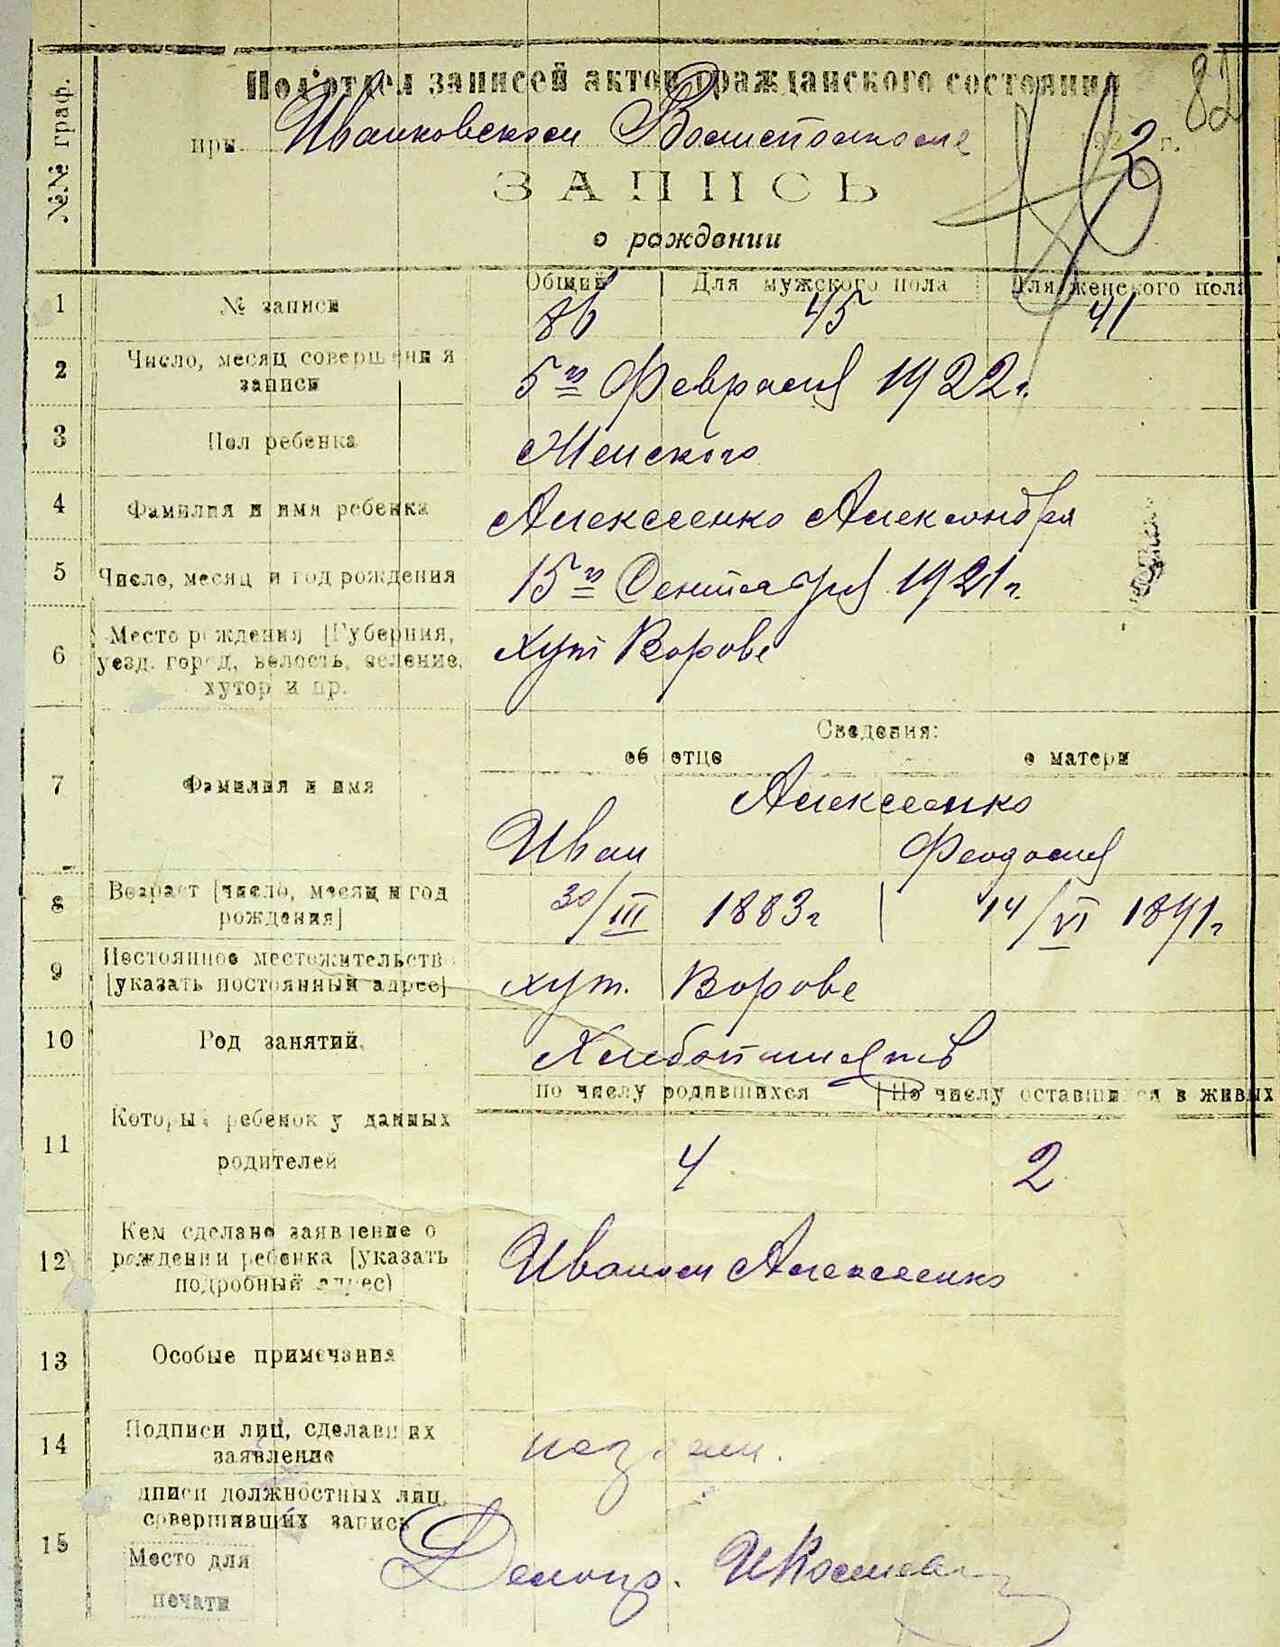 82
№№ граф.
Подотдел записей актов гражданского состояния
при Иванковском Волисполкоме 192 2 г.
ЗАПИСЬ
о рождении
Общий Для мужского пола Для женского пола
1 № записи 86 45 41
2 Число, месяц совершения записи 5го Февраля 1922 г.
3 Пол ребенка Женского
4 Фамилия и имя ребенка Алексеенко Александра
5 Число, месяц и год рождения 15го Сентября 1921 г.
6 Место рождения [Губерния, уезд, город, волость, селение, хутор и пр. хут Ворове
Сведения:
об отце о матери
7 Фамилия и имя Алексеенко
Иван Феодосия
8 Возраст [число, месяц и год рождения] 30/III 1883 г 14/VI 1891 г
9 Постоянное местожительств [указать постоянный адрес] хут. Ворове
10 Род занятий Хлебопашеств
По числу родившихся По числу оставшихся в живых
11 Который ребенок у данных родителей 4 2
12 Кем сделано заявление о рождении ребенка [указать подробный адрес) Иваном Алексеенко
13 Особые примечания
14 Подписи лиц, сделавших заявление
15 дписи должностных лиц, совершивших запись
Делопр.
Место для печати